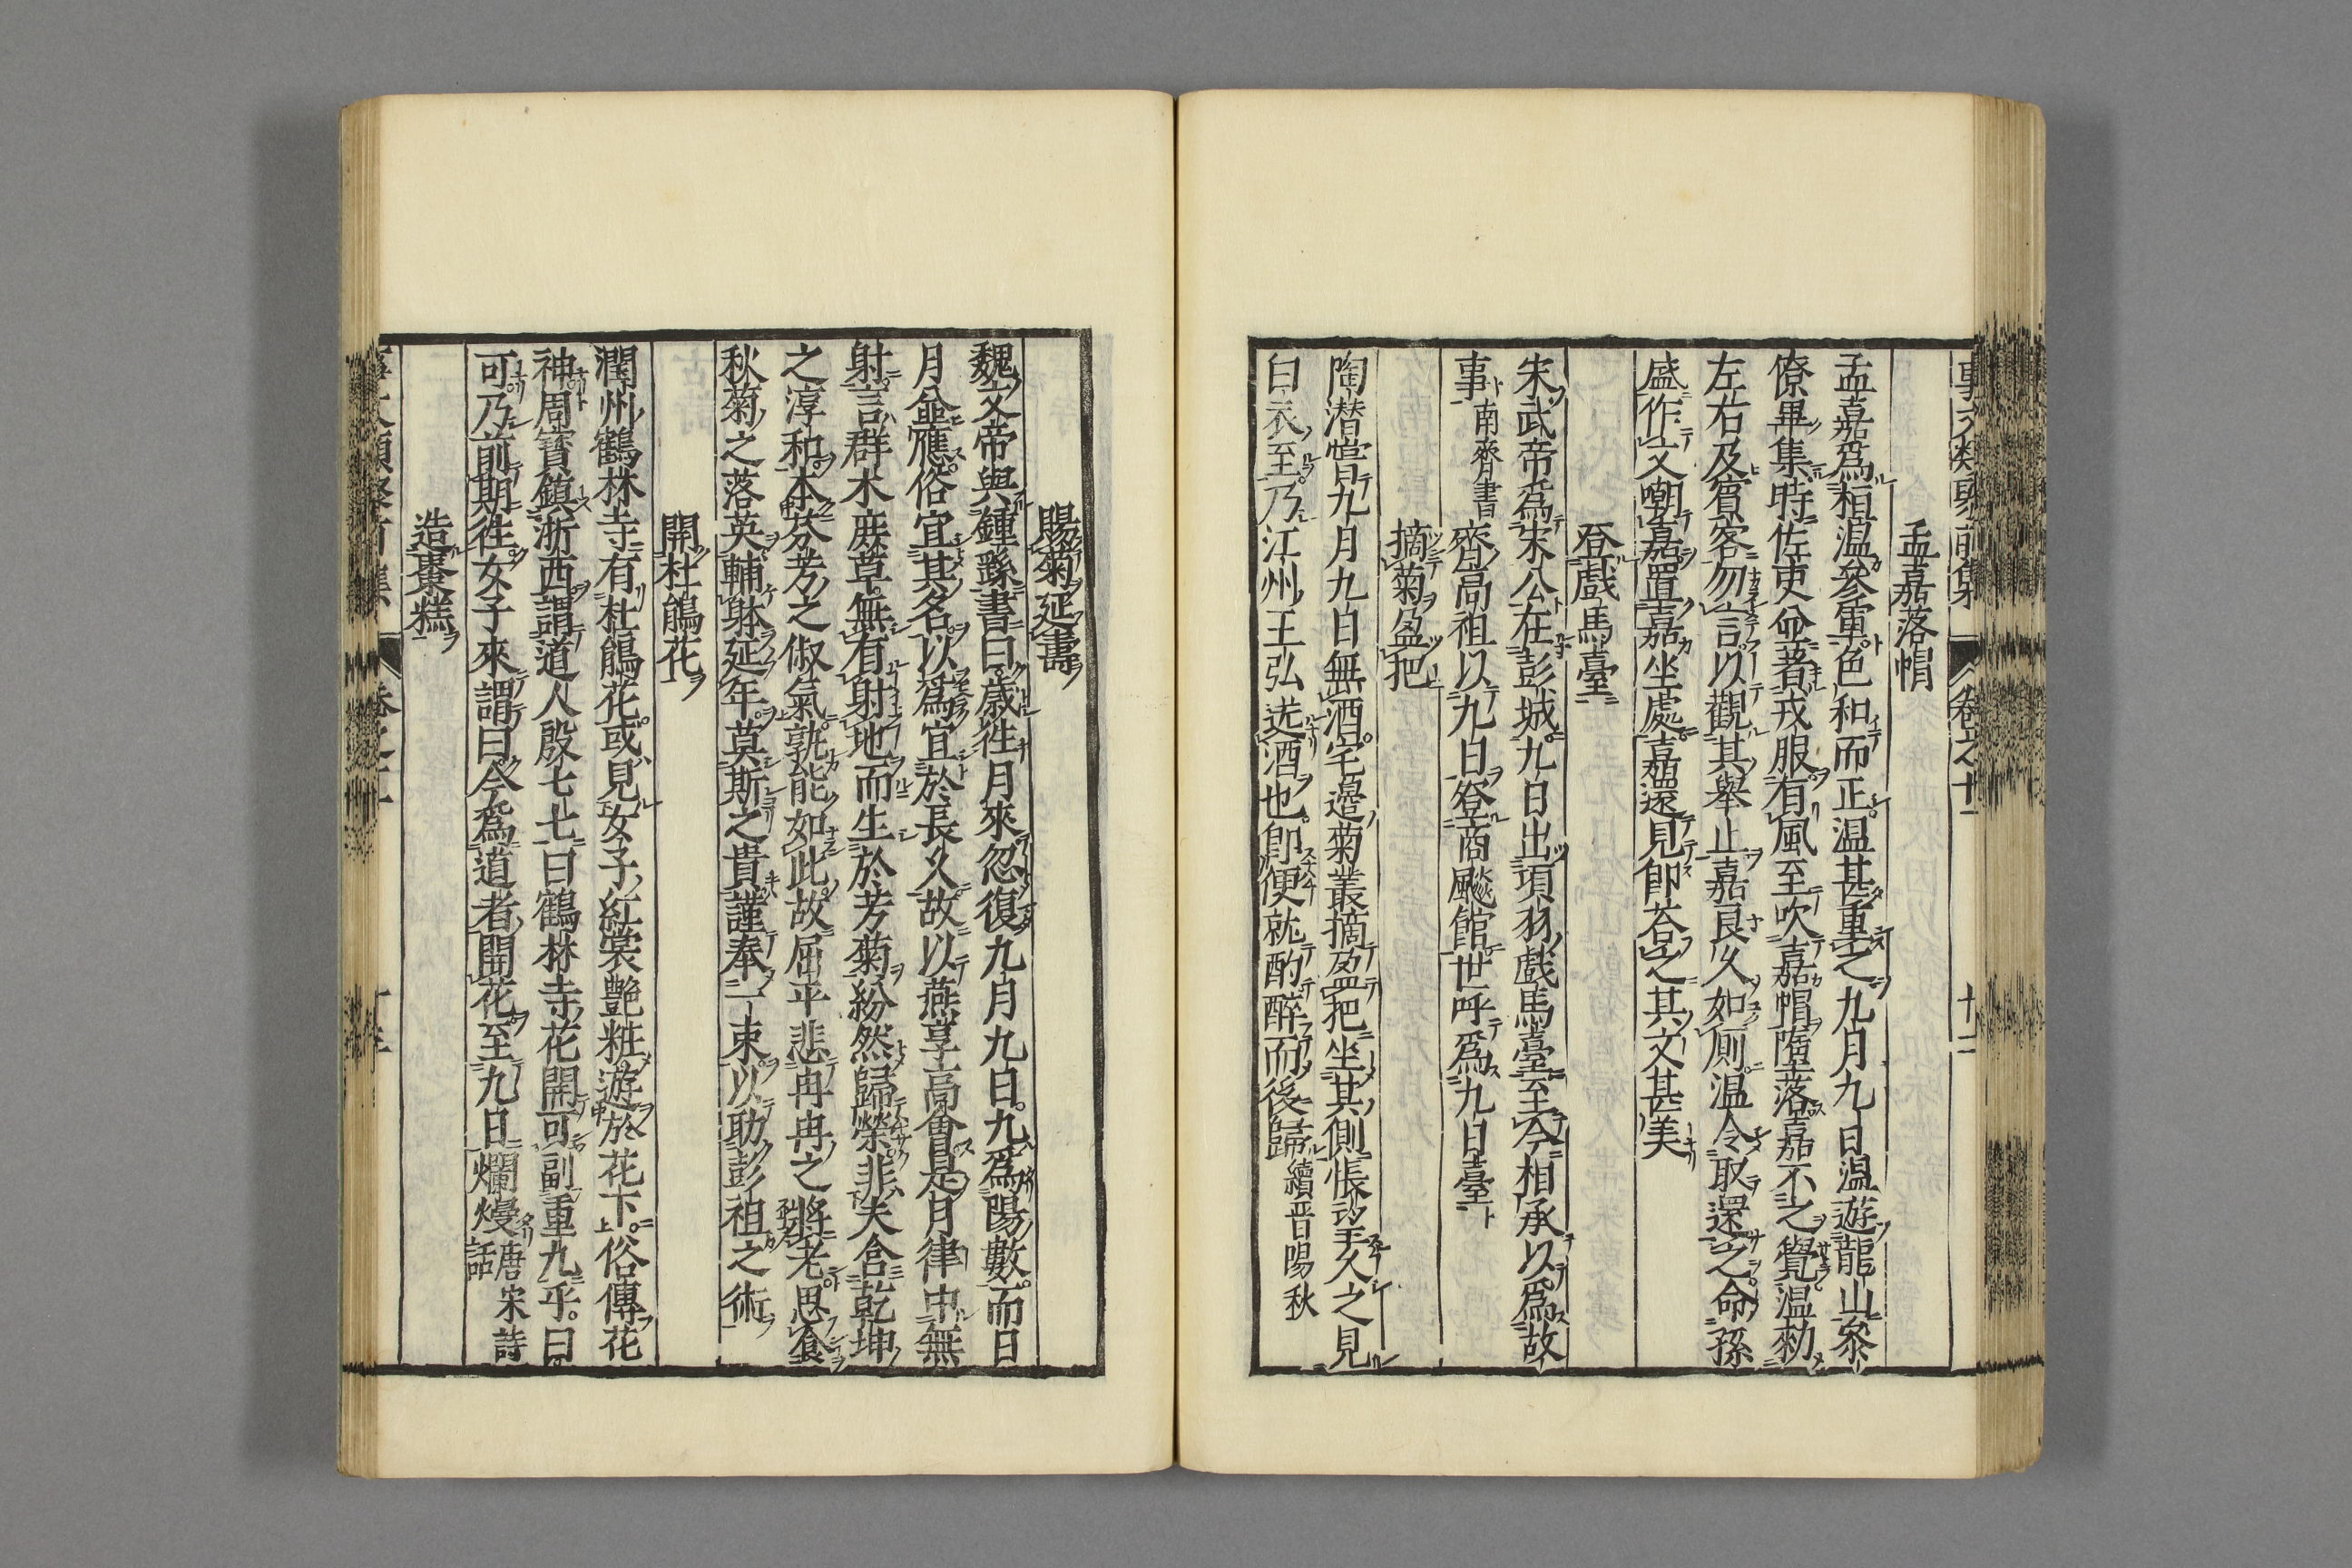 事文類聚前集 卷之十一 十二
孟嘉落帽
孟嘉爲桓溫參軍色和而正溫甚重之九月九日溫遊龍山參
僚畢集時佐吏並著戎服有風至吹嘉帽墮落嘉不之覺溫勑
左右及賓客勿言以觀其舉止嘉良久如厠溫令取還之命孫
盛作文嘲嘉置嘉坐處嘉還見卽荅之其文甚美
登戲馬臺
宋武帝爲宋公在彭城九日出項羽戲馬臺至今相承以爲故
事南齊書 齊高祖以九日登商飈館世呼爲九日臺
摘菊盈把
陶潛嘗九月九日無酒宅邊菊叢摘盈把坐其側悵望久之見
白衣至乃江州王弘送酒也卽便就酌醉而後歸續晋陽秋
賜菊延壽
魏文帝與鍾繇書曰歲徃月來忽復九月九日九爲陽數而日
月並應俗宜其名以爲宜於長久故以燕享高會是月律中無
射言群木庶草無有射地而生於芳菊紛然歸榮非夫含乾坤
之淳和本芬芳之俶氣孰能如此故屈平悲冉冉之將老思飡
秋菊之落英輔躰延年莫斯之貴謹奉一束以助彭祖之術
開杜鵑花
潤州鶴林寺有杜鵑花或見女子紅裳艷粧遊於花下俗傳花
神周寶鎮浙西謂道人殷七七曰鶴林寺花開可副重九乎曰
可乃前期徃女子來謂曰今爲道者開花至九日爛熳唐宋詩話
造棗糕